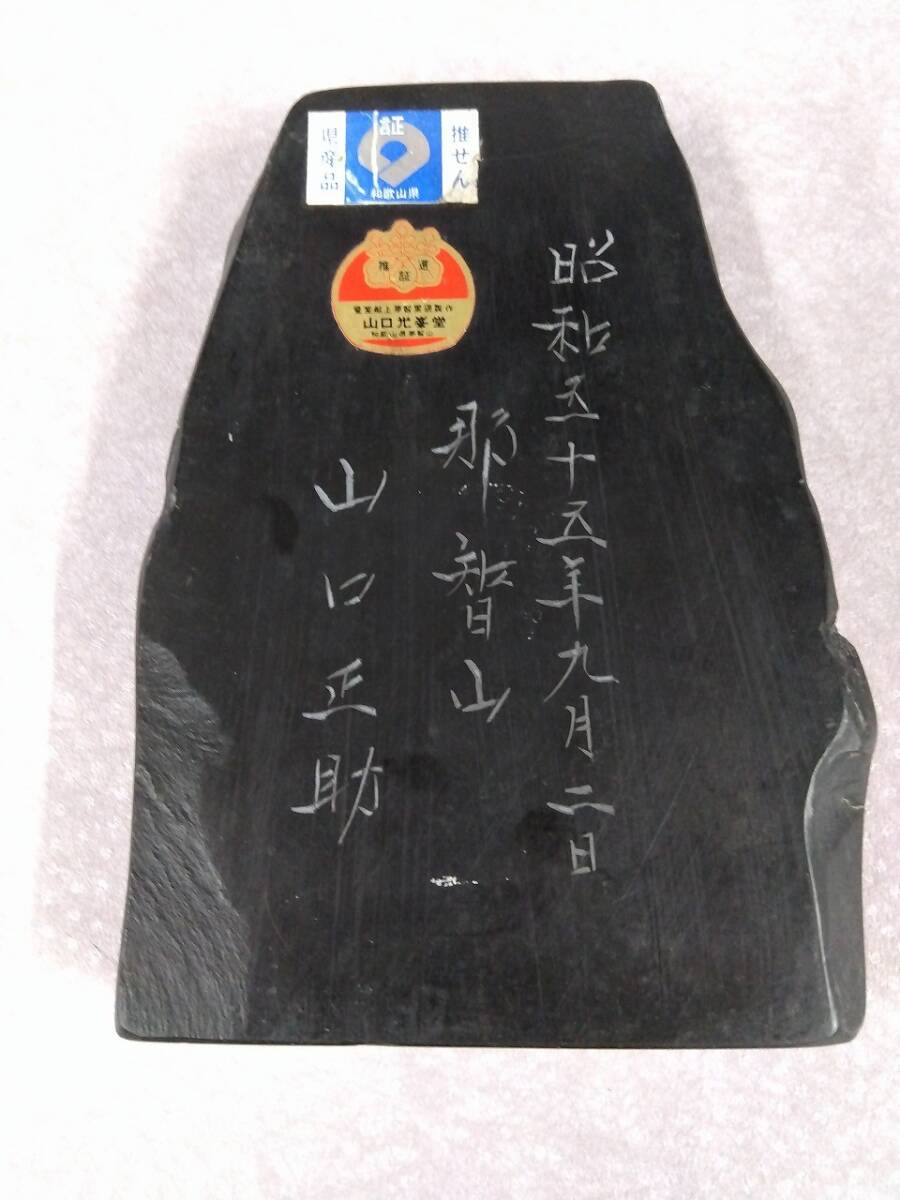 県産品
証
和歌山県
推せん
推 証 選
山口光峯堂
和歌山県那智山
昭和五十五年九月二日
那智山
山口正助